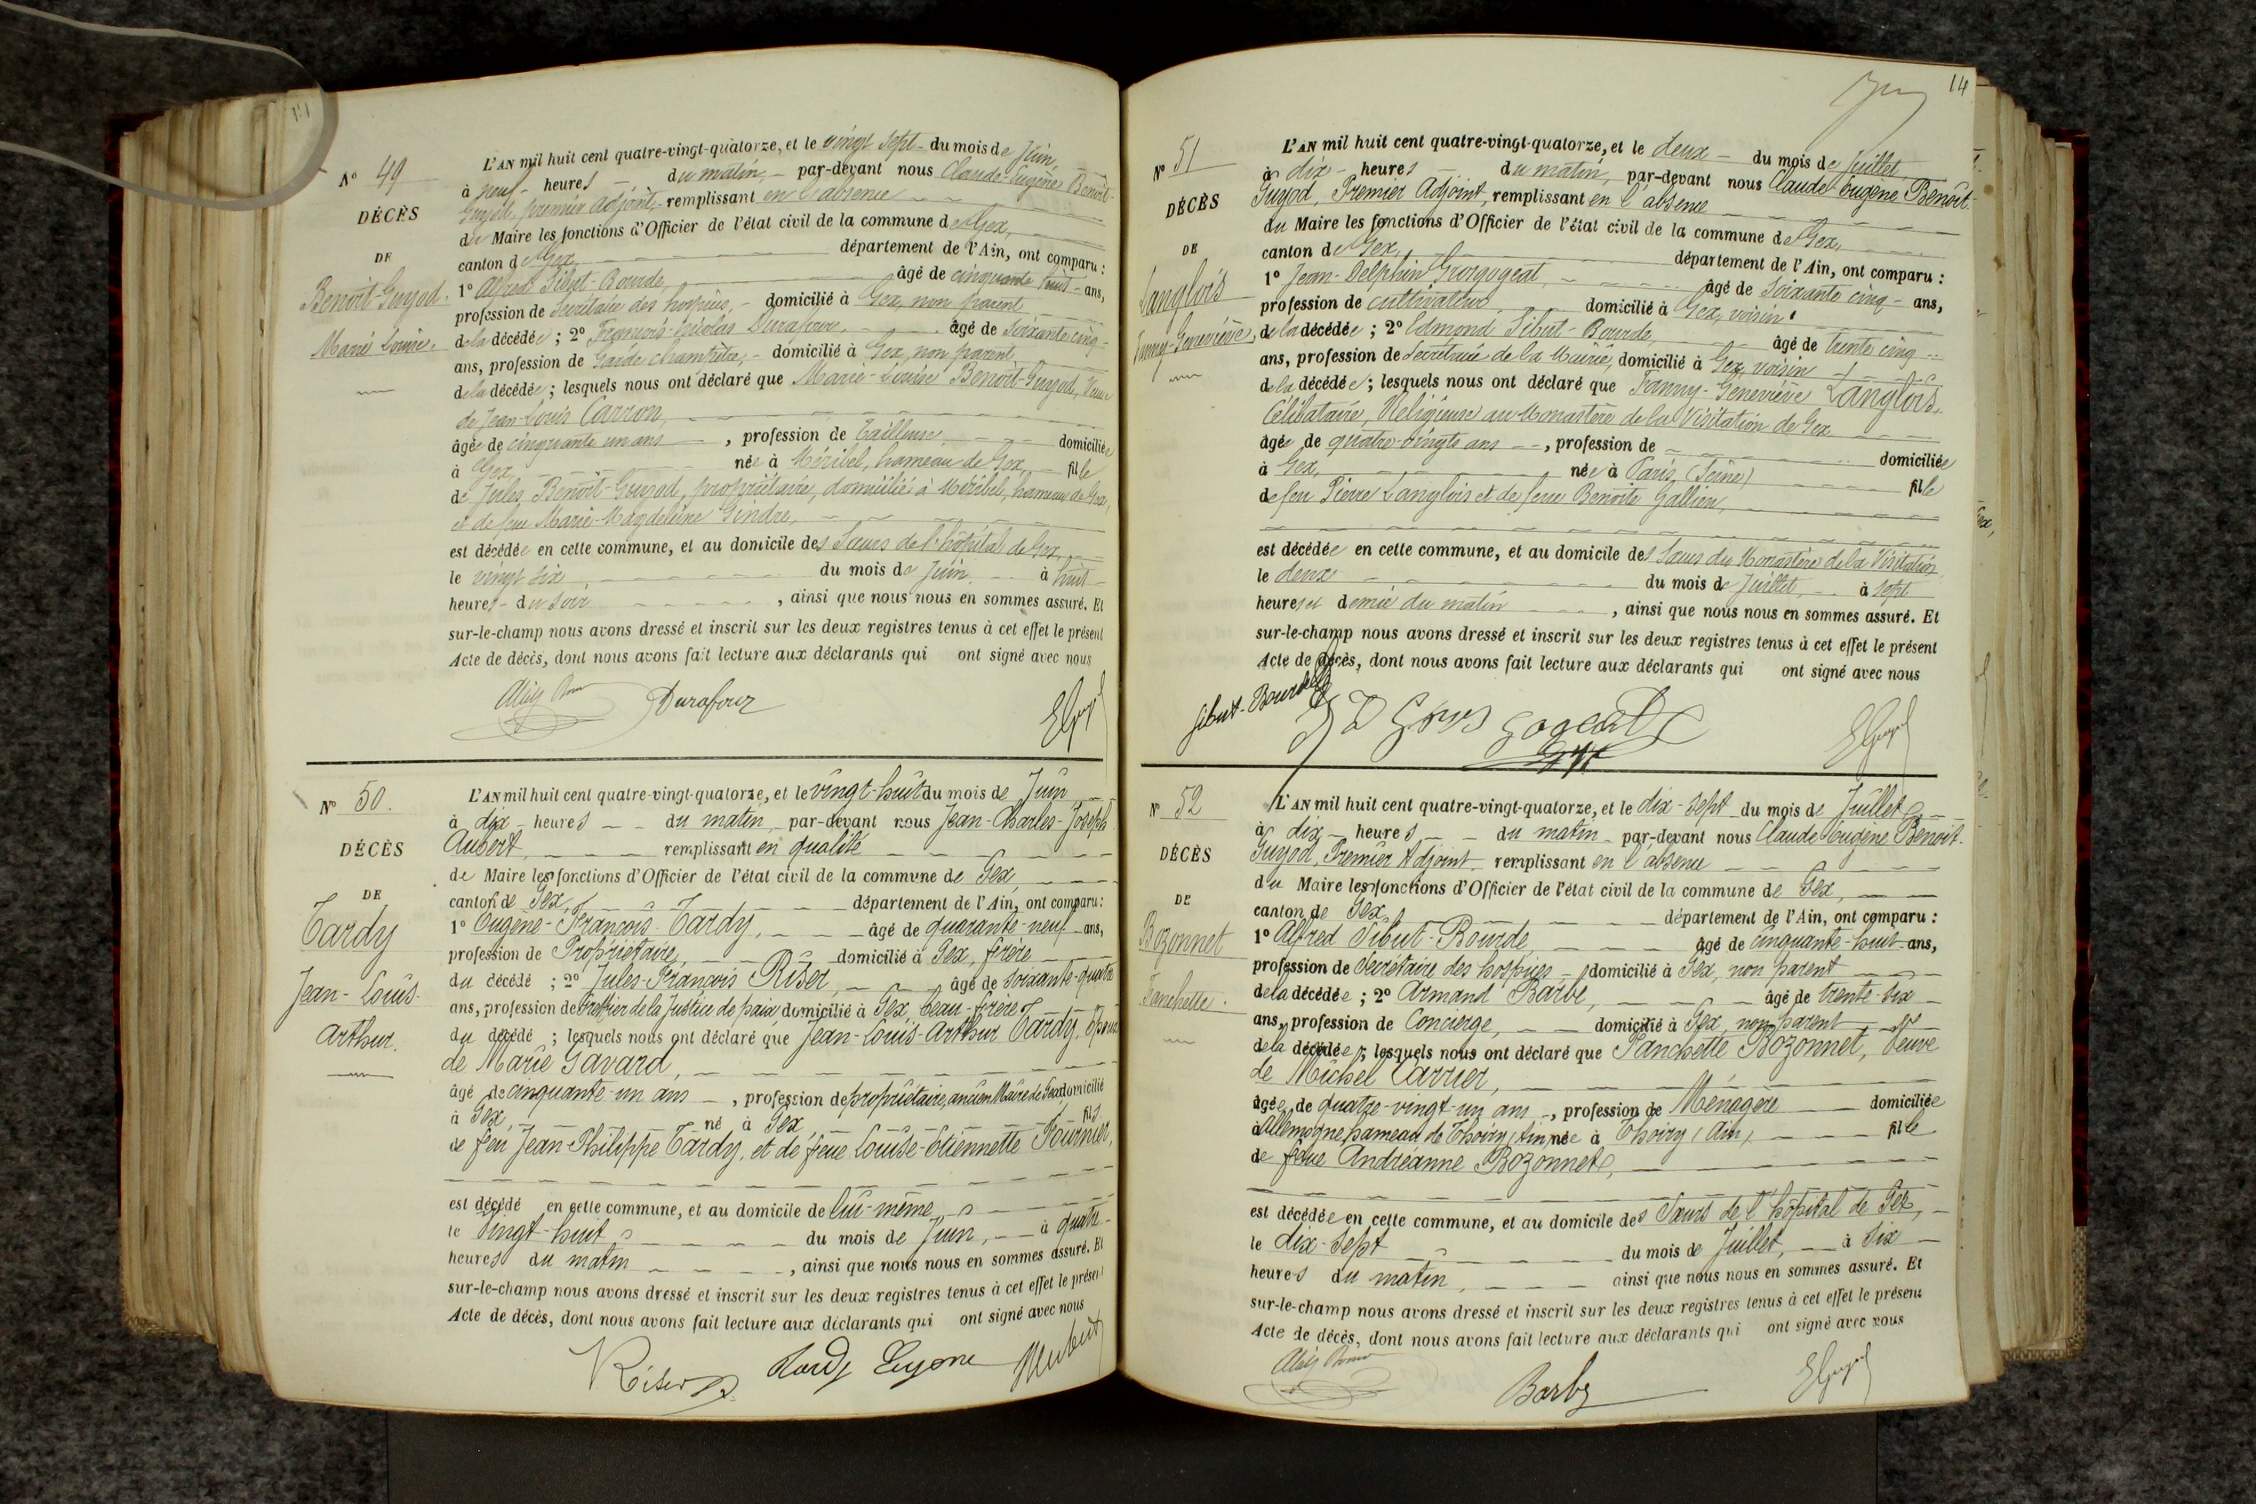 Nº 49
DÉCÈS
DE
Benoît-Guyod
Marie Louise.
L'AN mil huit cent quatre-vingt-quatorze, et le vingt sept du mois de Juin,
à neuf heures du matin, par-devant nous Claude-Eugène Benoît-
Guyod, premier adjoint, remplissant en l'absence
du Maire les fonctions d'Officier de l'état civil de la commune de Gex,
canton de Gex, département de l'Ain, ont comparu :
1º Alfred Sibut-Bourde, âgé de cinquante huit ans,
profession de Secrétaire des hospices, domicilié à Gex, non parent
de la décédée ; 2º François-Nicolas Durafour, âgé de soixante cinq
ans, profession de Garde champêtre, domicilié à Gex, non parent
de la décédée ; lesquels nous ont déclaré que Marie-Louise Benoît-Guyod, Veuve
de Jean-Louis Carron,
âgée de cinquante un ans, profession de Tailleuse, domiciliée
à Gex, née à Méribel, hameau de Gex, fille
de Jules Benoît-Guyod, propriétaire, domicilié à Méribel, hameau de Gex,
et de feue Marie-Magdeleine Gindre,
est décédée en cette commune, et au domicile des Sœurs de l'hôpital de Gex,
le vingt six du mois de Juin, à huit
heures du soir, ainsi que nous nous en sommes assuré. Et
sur-le-champ nous avons dressé et inscrit sur les deux registres tenus à cet effet le présent
Acte de décès, dont nous avons fait lecture aux déclarants qui ont signé avec nous
Durafour
EGuyod
Nº 50.
DÉCÈS
DE
Tardy
Jean-Louis-
Arthur.
L'AN mil huit cent quatre-vingt-quatorze, et le vingt-huit du mois de Juin
à dix heures du matin, par-devant nous Jean-Charles-Joseph
Aubert, remplissant en qualité
de Maire les fonctions d'Officier de l'état civil de la commune de Gex,
canton de Gex, département de l'Ain, ont comparu :
1º Eugène-François Tardy, âgé de quarante-neuf ans,
profession de Propriétaire, domicilié à Gex, frère
du décédé ; 2º Jules-François Riser, âgé de soixante-quatre
ans, profession de Greffier de la Justice de paix domicilié à Gex, beau-frère
du décédé ; lesquels nous ont déclaré que Jean-Louis-Arthur Tardy, Epoux
de Marie Gavard,
âgé de cinquante-un ans, profession de propriétaire, ancien Maire de Gex domicilié
à Gex, né à Gex, fils
de feu Jean-Philippe Tardy, et de feue Louise-Etiennette Fournier,
est décédé en cette commune, et au domicile de lui-même,
le Vingt-huit du mois de Juin, à quatre
heures du matin, ainsi que nous nous en sommes assuré. Et
sur-le-champ nous avons dressé et inscrit sur les deux registres tenus à cet effet le présent
Acte de décès, dont nous avons fait lecture aux déclarants qui ont signé avec nous
Riser Tardy Eugène Aubert
14
Nº 51
DÉCÈS
DE
Langlois
Fanny-Geneviève,
L'AN mil huit cent quatre-vingt-quatorze, et le deux du mois de Juillet
à dix heures du matin, par-devant nous Claude-Eugène Benoît-
Guyod, Premier Adjoint, remplissant en l'absence
du Maire les fonctions d'Officier de l'état civil de la commune de Gex,
canton de Gex, département de l'Ain, ont comparu :
1º Jean-Delphin Grosgogeat, âgé de soixante cinq ans,
profession de cultivateur, domicilié à Gex, voisin
de la décédée ; 2º Edmond Sibut-Bourde, âgé de trente cinq
ans, profession de Secrétaire de la Mairie, domicilié à Gex, voisin
de la décédée ; lesquels nous ont déclaré que Fanny-Geneviève Langlois,
Célibataire, Religieuse au Monastère de la Visitation de Gex
âgée de quatre-vingts ans, profession de domiciliée
à Gex, née à Paris, (Seine) fille
de feu Pierre Langlois et de feue Benoite Gallien,
est décédée en cette commune, et au domicile des Sœurs du Monastère de la Visitation
le deux du mois de Juillet, à sept
heures et demie du matin, ainsi que nous nous en sommes assuré. Et
sur-le-champ nous avons dressé et inscrit sur les deux registres tenus à cet effet le présent
Acte de décès, dont nous avons fait lecture aux déclarants qui ont signé avec nous
Sibut-Bourde
J D Grosgogeat
EGuyod
Nº 52
DÉCÈS
DE
Bozonnet
Fanchette.
L'AN mil huit cent quatre-vingt-quatorze, et le dix-sept du mois de Juillet,
à dix heures du matin par-devant nous Claude-Eugène Benoit-
Guyod, Premier Adjoint remplissant en l'absence
du Maire les fonctions d'Officier de l'état civil de la commune de Gex,
canton de Gex, département de l'Ain, ont comparu :
1º Alfred Sibut-Bourde âgé de cinquante-huit ans,
profession de Secrétaire des hospices domicilié à Gex, non parent
de la décédée ; 2º Armand Barbe, âgé de trente-six
ans, profession de Concierge, domicilié à Gex, non parent
de la décédée ; lesquels nous ont déclaré que Fanchette Bozonnet, Veuve
de Michel Carrier,
âgée de quatre-vingt-un ans, profession de Ménagère domiciliée
à Allemogne hameau de Thoiry (Ain) née à Thoiry (Ain) fille
de feue Andréanne Bozonnet,
est décédée en cette commune, et au domicile des Sœurs de l'hôpital de Gex,
le dix-sept du mois de Juillet, à six
heures du matin, ainsi que nous nous en sommes assuré. Et
sur-le-champ nous avons dressé et inscrit sur les deux registres tenus à cet effet le présent
Acte de décès, dont nous avons fait lecture aux déclarants qui ont signé avec nous
Barbe
EGuyod